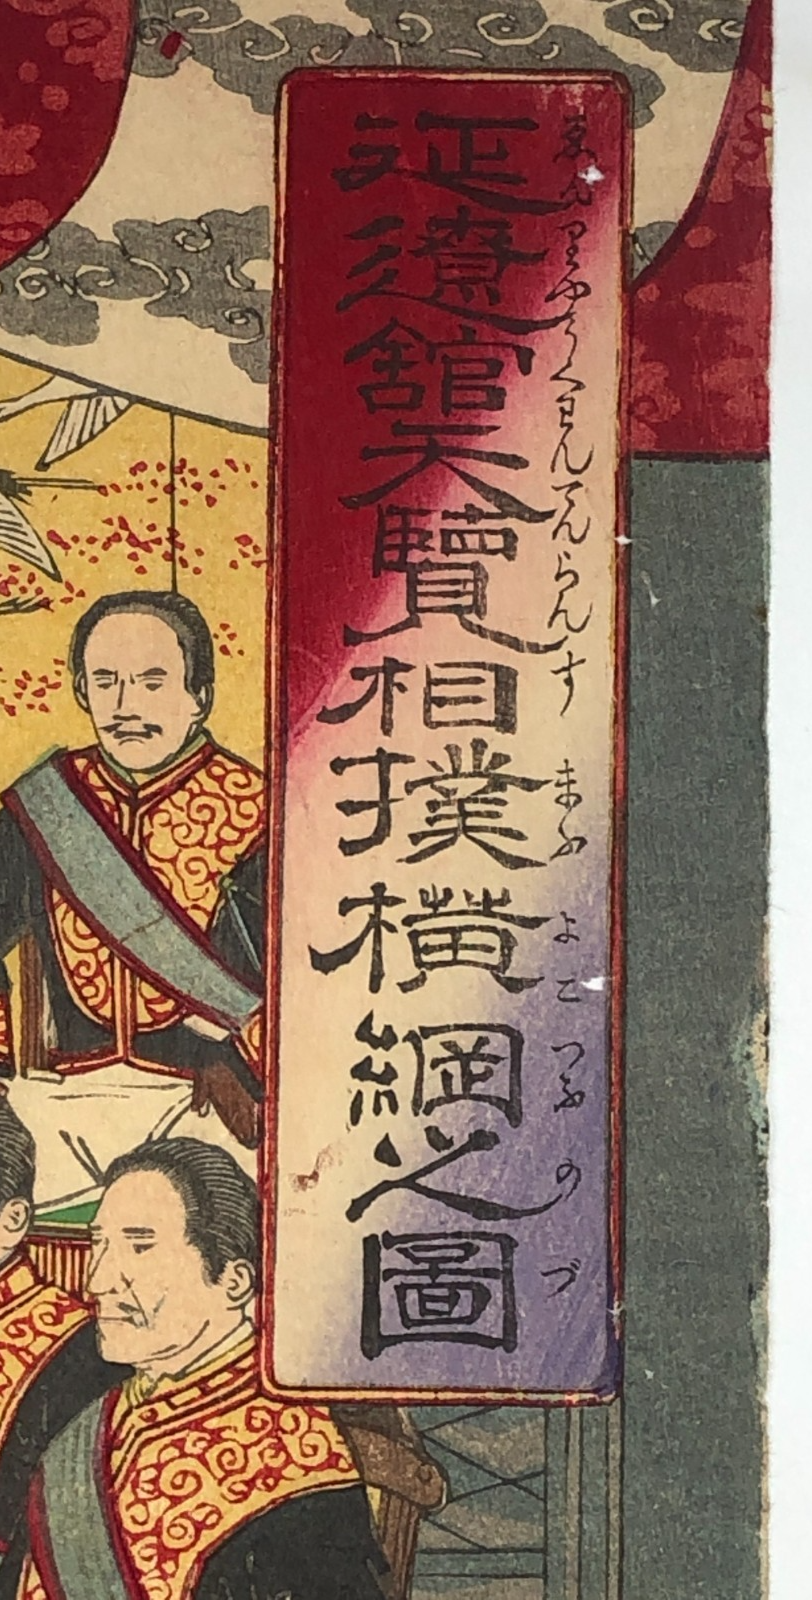 延遼舘天覽相撲横綱之圖
ゑんりやうくわんてんらんすまふよこつなのづ